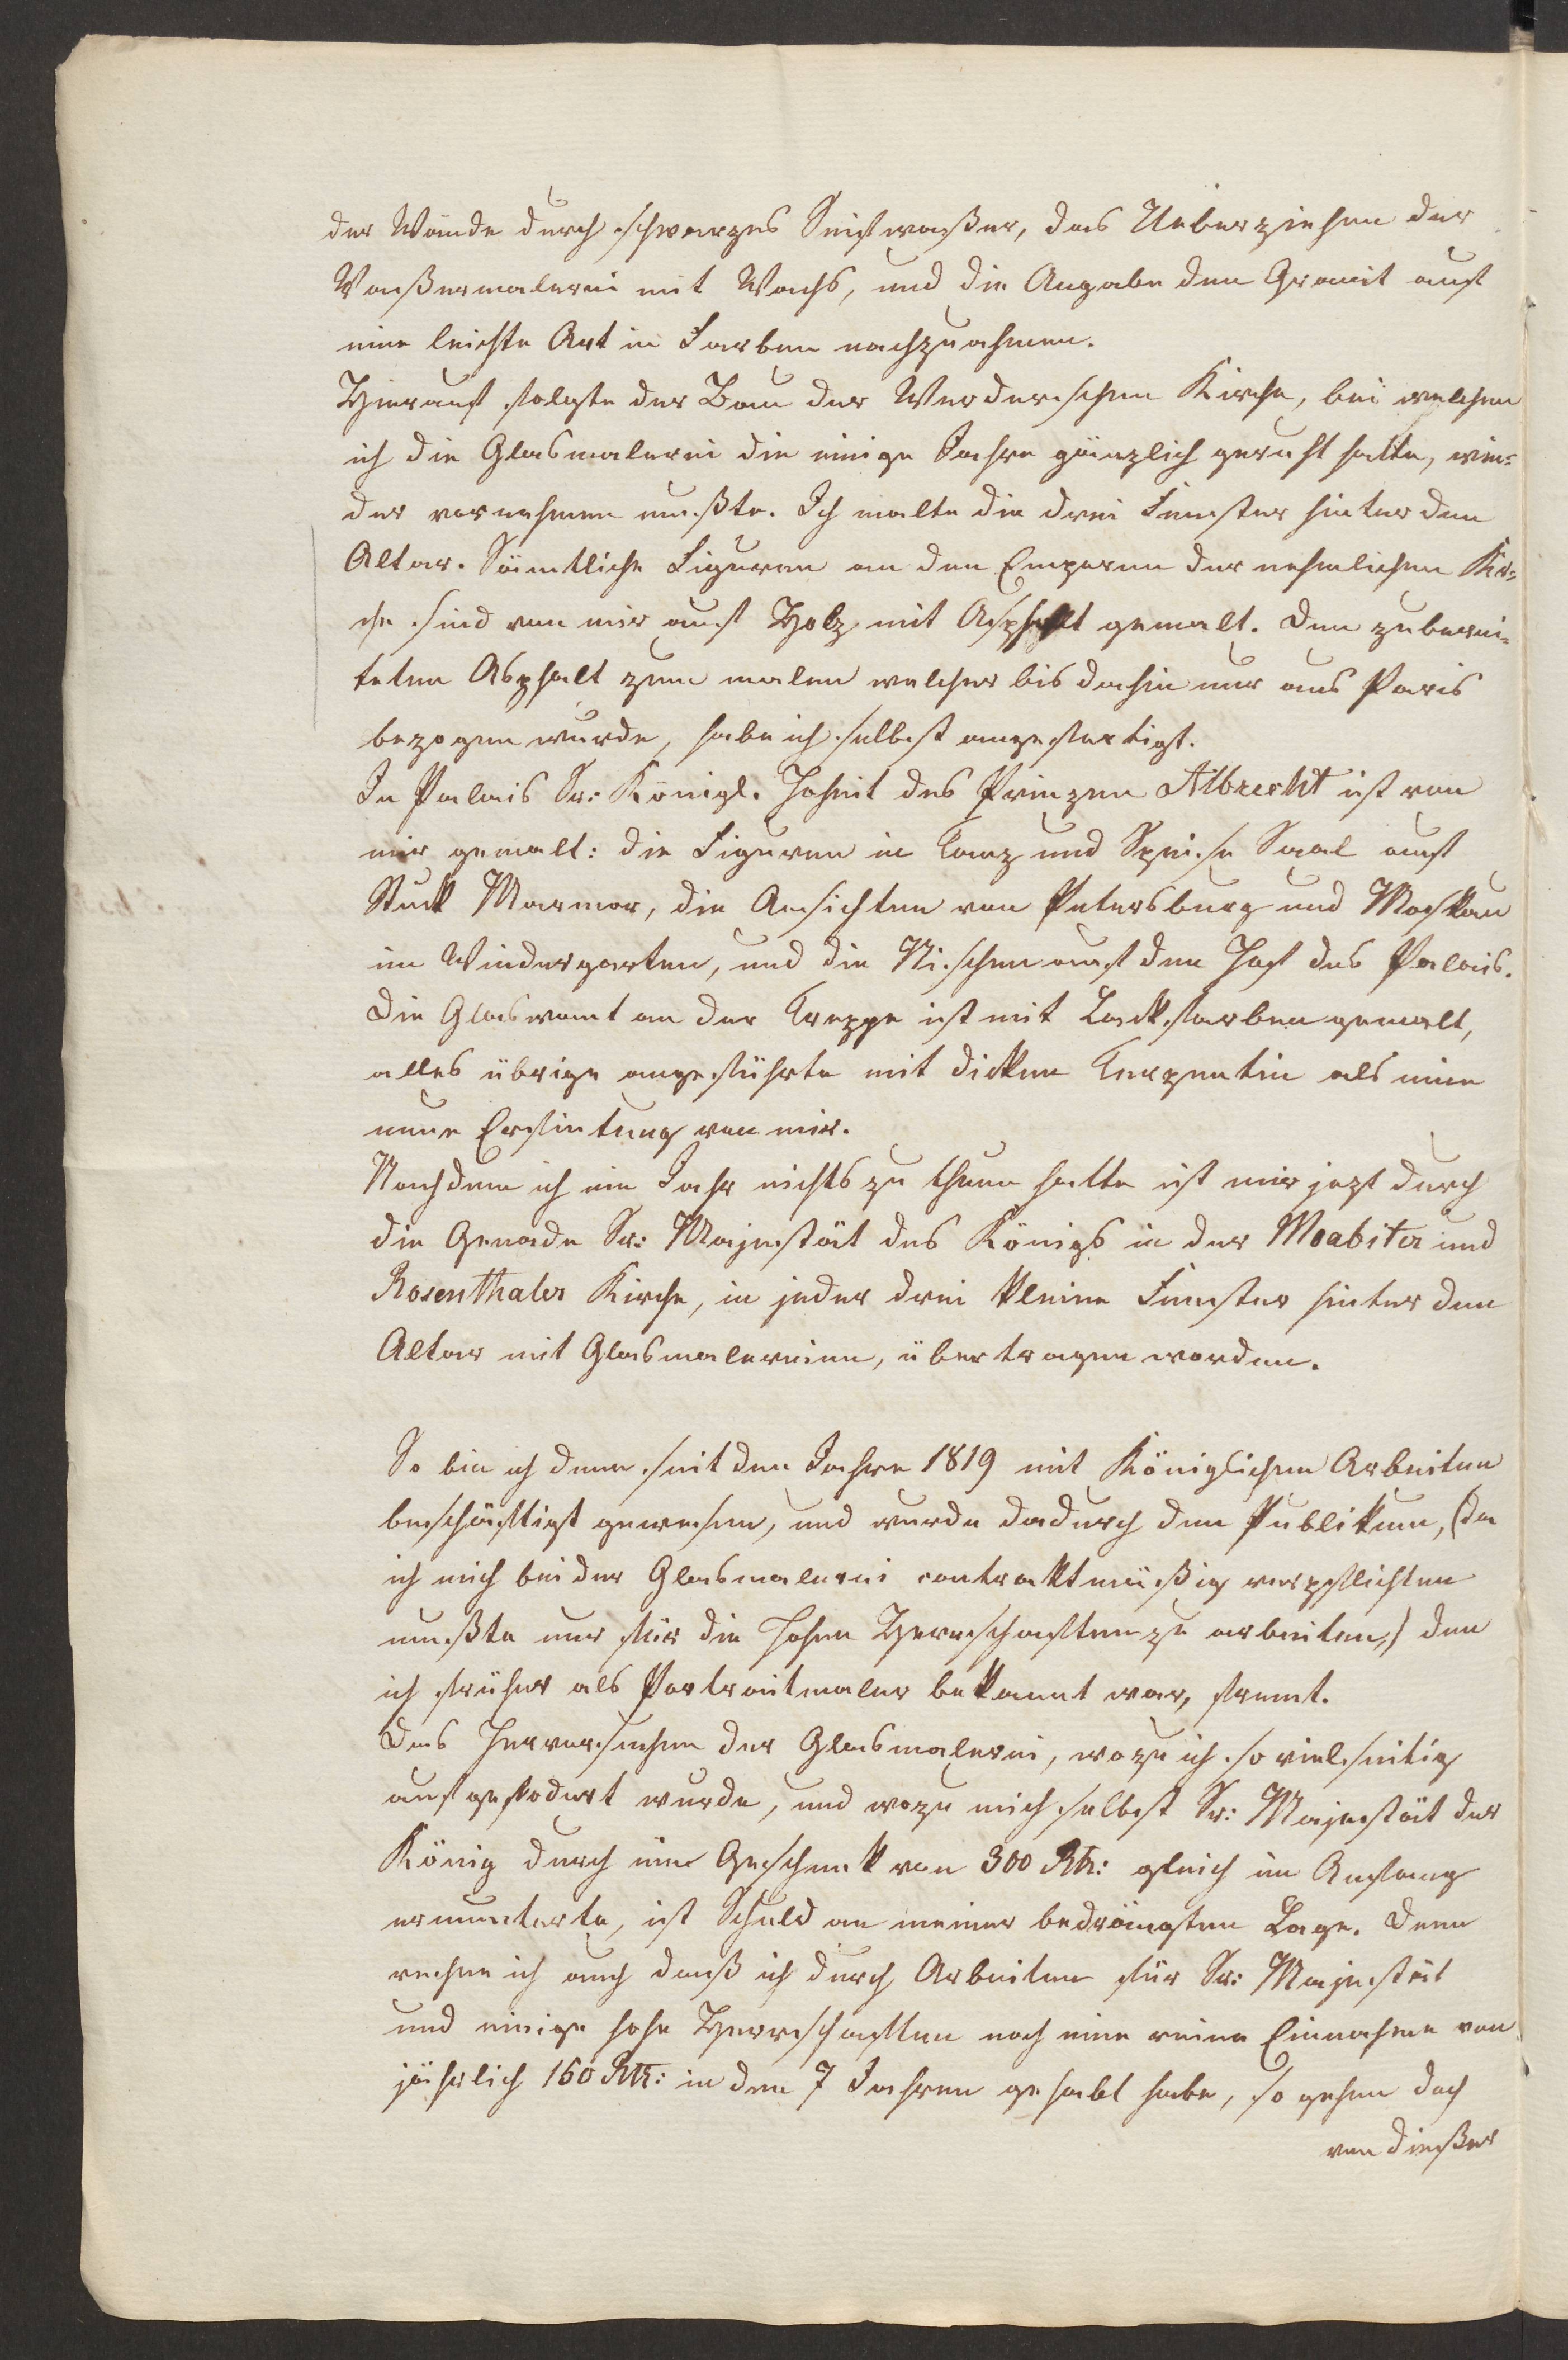 der Wände durch schwarzes Seifwaßer, das Ueberziehen der
Waßermalerei mit Wachs, und die Angabe den Granit auf
eine leichte Art in Farben nachzuahmen.
Hierauf folgte der Bau der Werderschen Kirche, bei welchen
ich die Glasmalerei die einige Jahre gänzlich geruht hatte, wie=
der vornehmen mußte. Ich malte die drei Fenster hinter dem
Altar. Sämtliche Figuren an den Emporen der nehmlichen Kir=
che sind von mir auf Holz mit Asphalt gemalt. Den zuberei=
teten Asphalt zum malen welcher bis dahin nur aus Paris
bezogen wurde, habe ich selbst angefertigt.
In Palais Sr: Königl. Hoheit des Prinzen Albrecht ist von
mir gemalt: die Figuren in Tanz und Speise Saal auf
Stuck Marmor, die Ansichten von Petersburg und Moskau
im Windergarten, und die Nischen auf den Hof des Palais.
Die Glaswant an der Treppe ist mit Lackfarben gemalt,
alles übrige angeführte mit dicken Terpentin als eine
neue Erfintung von mir.
Nachdem ich ein Jahr nichts zu thuen hatte ist mir jezt durch
die Genade Sr: Majestät des Königs in der Moabiter und
Rosenthaler Kirche, in jeder drei kleine Fenster hinter dem
Altar mit Glasmalereien, übertragen worden.
So bin ich denn seit den Jahre 1819 mit Königlichen Arbeiten
beschäftigt gewesen, und wurde dadurch dem Publikum, (da
ich mich bei der Glasmalerei contraktmäßig verpflichten
mußte nur für die Hohen Herrschaften zu arbeiten,) den
ich früher als Portraitmaler bekannt war, fremt.
Das Hervorsuchen der Glasmalerei, wozu ich so vielseitig
aufgefodert wurde, und wozu mich selbst Sr: Majestät der
König durch ein Geschenk von 300 Rtr: gleich im Anfang
ermunterte, ist Schuld an meiner bedrängten Lage. Denn
rechne ich auch daß ich durch Arbeiten für Sr: Majestät
und einige hohe Herrschaften noch eine reine Einnahme von
jährlich 160 Rtr: in den 7 Jahren gehabt habe, so gehen doch
von dießer